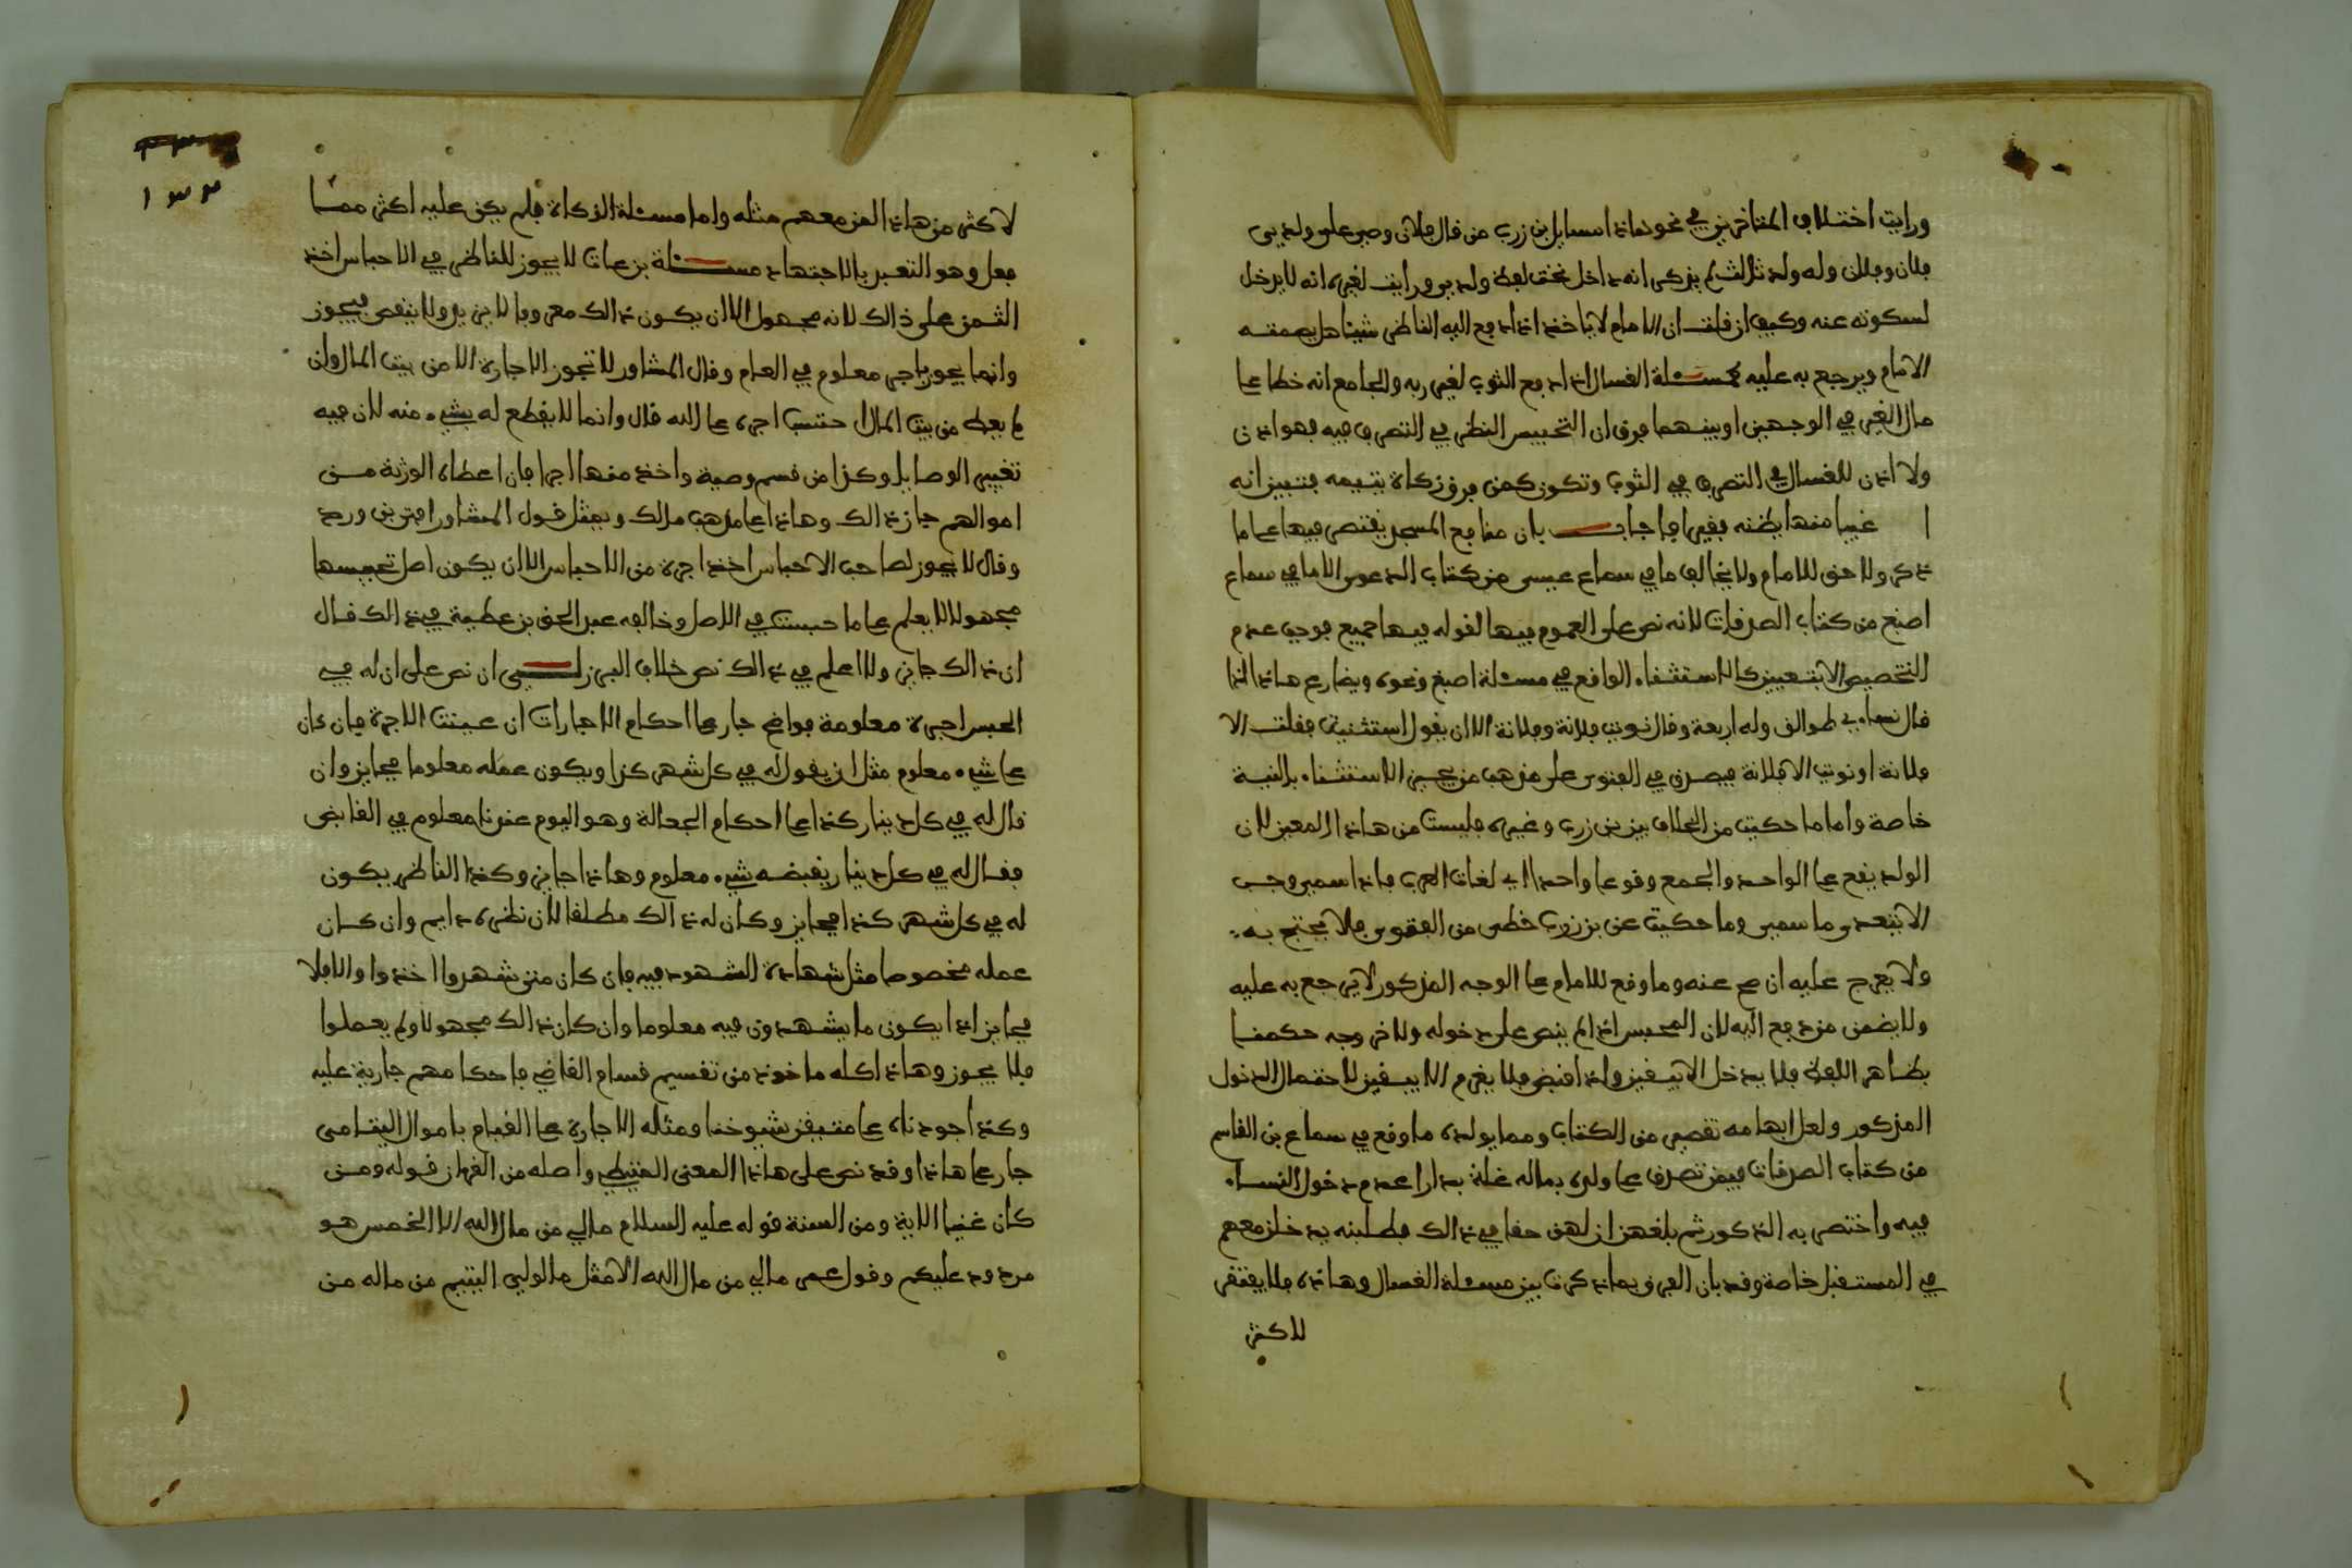 ورايت اختلاف المتاخرين في نحو هاذا مسايل بن زرب من قال فلان وصي على ولدي
فلان وفلان وله ولد ثالث لم يذكر انه داخل تحت لفظ ولدي ورايت لغيره انه لا يدخل
لسكوته عنه وكيف ان قلت ان الامام لا ياخذ اذا دفع اليه الناظر شيئا هل يضمنه
الامام ويرجع به عليه كمسئلة الغسال اذا دفع الثوب لغير ربه والجامع انه خطا على
مال الغير في الوجهين او بينهما فرق ان التحبيس النظر في التصرف فيه فهو اذن
ولا اذن للغسال في التصرف في الثوب وتكون كمن فرق زكاة يتيمه فتبين انه
غنيا منها يظنه فقيرا فاجاب بان منافع المسجد يقتصر فيها على ما
ذكر ولا حق للامام ولا يخالف ما في سماع عيسى من كتاب الدعوى الا ما في سماع
اصبغ من كتاب الصدقات لانه نص على العموم فيها لقوله فيها جميع فوجب عدم
التخصيص الا بتعيين كالاستثناء الواقع في مسئلة اصبغ ونحوه ويضارع هاذا اذا
قال نساءي طوالق وله اربعة وقال نويت فلانة وفلانة الا ان يقول استثنيت فقلت الا
فلانة او نويت الا فلانة فيصدق في الفتوى على مذهب من يجيز الاستثناء بالنية
خاصة واما ما حكيت من الخلاف بين بن زرب وغيره فليست من هاذا المعنى لان
الولد يقع على الواحد والجمع وقوعا واحدا في لغات العرب فاذا سمى وجب
الا يتعدى ما سمى وما حكيت عن بن زرب خطى من الفقوى فلا يحتج به
ولا يعرج عليه ان صح عنه وما وقع للامام على الوجه المذكور لا يرجع به عليه
ولا يضمن من دفع اليه لان المحبس اذا لم ينص على دخوله ولا خروجه حكمنا
بظاهر اللفظ فلا يدخل الا بيقين واذا قبض فلا يغرم الا بيقين لاحتمال الدخول
المذكور ولعل ابهامه تقصير من الكتاب ومما يولده ما وقع في سماع بن القاسم
من كتاب الصدقات فيمن تصدق على ولده بماله غلة بدارا عدم دخول النساء
فيه واختص به الذكور ثم بلغهن ان لهن حقا في ذالك فطلبنه يدخلن معهم
في المستقبل خاصة وقد بان الفرق بما ذكرت بين مسئلة الغسال وهاذه فلا يفتقر
لاكثر
١٣٢
لاكثر من هاذا الفن معهم مثله واما مسئلة الزكاة فلم يكن عليه اكثر مما
فعل وهو التعبير بالاجتهاد مسئلة بن عات لا يجوز للناظر في الاحباس اخذ
الثمن على ذالك لانه مجهول الا ان يكون ذالك معروفا لا يزيد ولا ينقص فيجوز
وانما يجوز باجر معلوم في العام وقال المشاور لا تجوز الاجارة الا من بيت المال وان
لم يعط من بيت المال احتسب اجره على الله قال وانما لا يقطع له بشيء منه لان فيه
تغيير الوصايا وكذا من قسم وصية واخذ منها اجرا فان اعطاه الورثة من
اموالهم جاز ذالك وهاذا على مذهب مالك وبمثل قول المشاور افتى بن ورد
وقال لا يجوز لصاحب الاحباس اخذ اجرة من الاحباس الا ان يكون اصل تحبيسها
مجهولا لا يعلم على ما حبست في الاصل وخالفه عبد الحق بن عطية في ذالك فقال
ان ذالك جايز ولا اعلم في ذالك نص خلاف البرزلي ان نص على ان له في
الحبس اجرة معلومة فواضح جار على احكام الاجارات ان عينت الاجرة فان كان
على شيء معلوم مثل ان يقول له في كل شهر كذا ويكون عمله معلوما فجايز وان
قال له في كل دينار كذا على احكام الجعالة وهو اليوم عندنا معلوم في القابض
فقال له في كل دينار يقبضه شيء معلوم وهاذا جايز وكذا الناظر يكون
له في كل شهر كذا فجايز وكان له ذالك مطلقا لان نظره دايم وان كان
عمله مخصوصا مثل شهادة الشهود فيه فان كان متى شهدوا اخذوا والا فلا
فجايز اذا يكون ما يشهدون فيه معلوما وان كان ذالك مجهولا ولم يعملوا
فلا يجوز وهاذا كله ماخوذ من تقسيم قسام القاضي فاحكامهم جارية عليه
وكذا جودناه على متيقن شيوخنا ومثله الاجارة على القيام باموال اليتامى
جار على هاذا وقد نص على هاذا المعنى المتيطي واصله من القران قوله ومن
كان غنيا الاية ومن السنة قوله عليه السلام مالي من مال الله الا الخمس هو
مردود عليكم وقول عمر مالي من مال الله الا مثل ما لولي اليتيم من ماله من